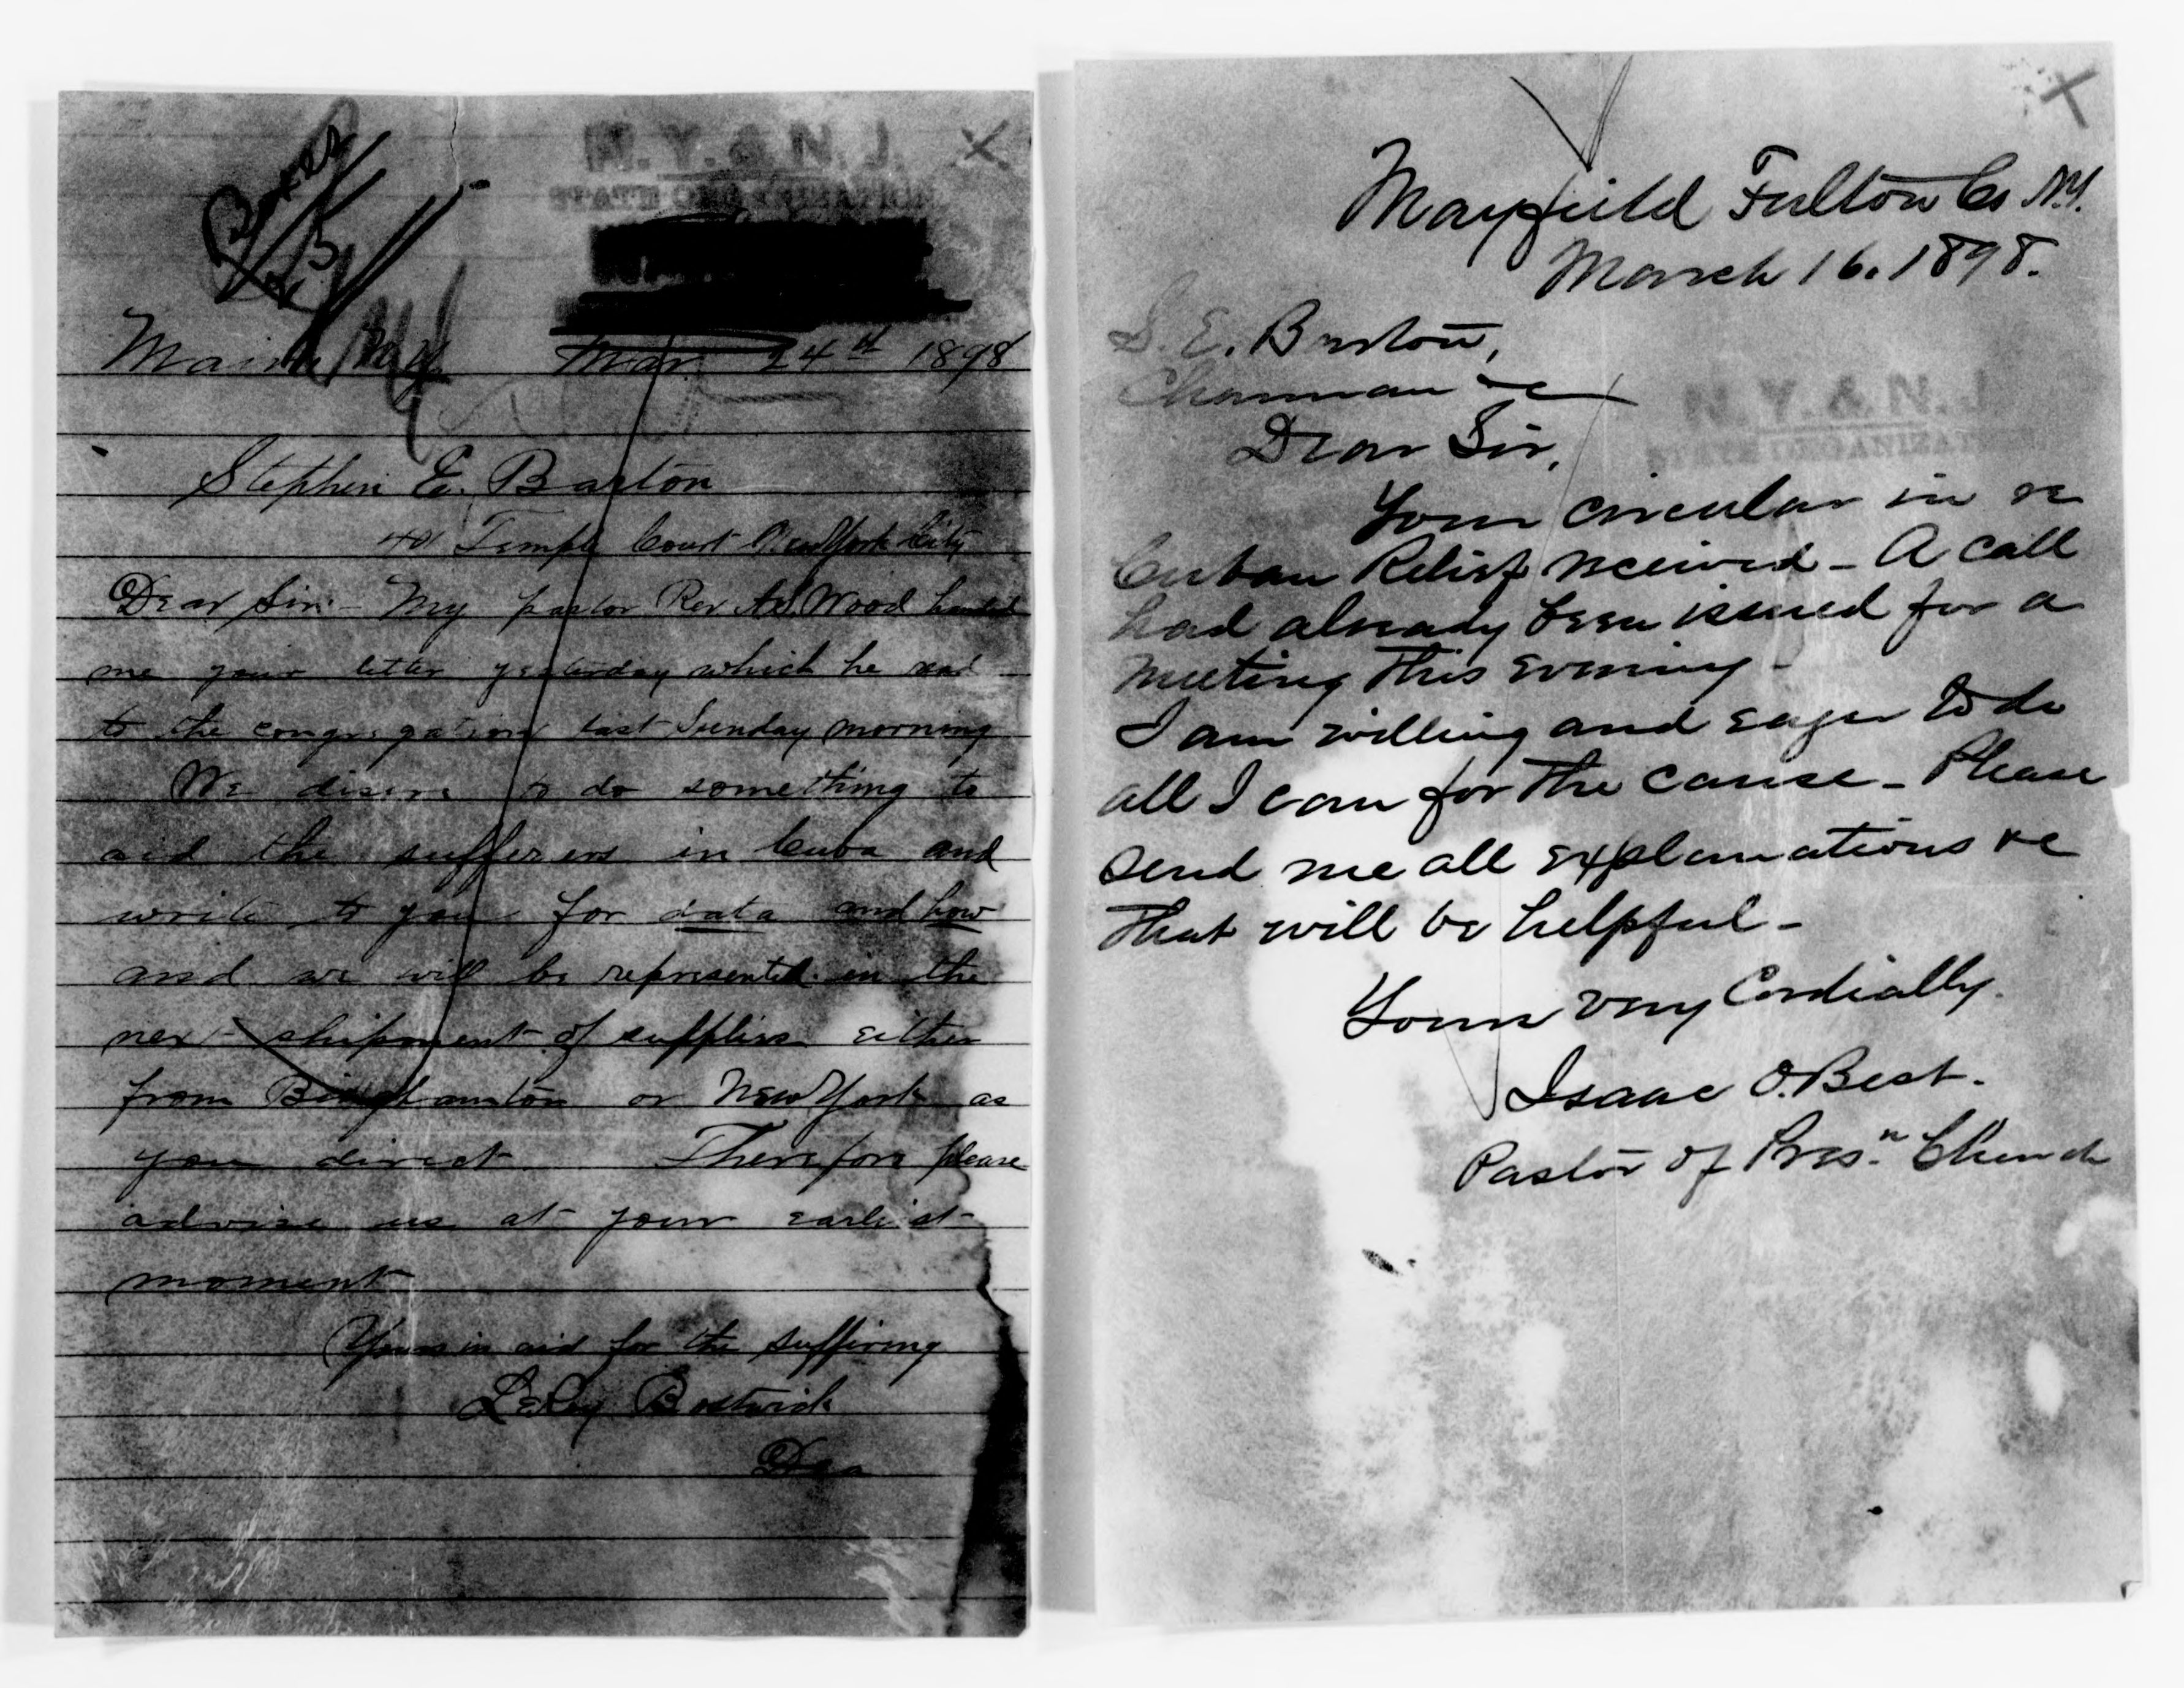 Boxes
N. Y. & N. J.
STATE ORGANIZATION
Maine N.Y. Mar. 24th 1898
Stephen E. Barton
Temple Court New York City
Dear Sir:- My pastor Rev Wood handed
me your letter yesterday which he read
to the congregation last Sunday morning
We desire to do something to
aid the sufferers in Cuba and
write to you for data and how
and we will be represented in the
next shipment of supplies either
from Binghamton or New York as
you direct Therefore please
advise us at your earliest
moment
Yours in aid for the suffering
LeRoy Bostwick
X
Mayfield Fulton Co N.Y.
March 16. 1898.
S. E. Barton,
Chairman &c
N. Y. & N. J.
STATE ORGANIZATION
Dear Sir,
Your circular in re
Cuban Relief received - A call
had already been issued for a
meeting this evening -
I am willing and eager to do
all I can for the cause - Please
send me all explanations &c
that will be helpful -
Yours very Cordially.
Isaac O. Best.
Pastor of Presn. Church